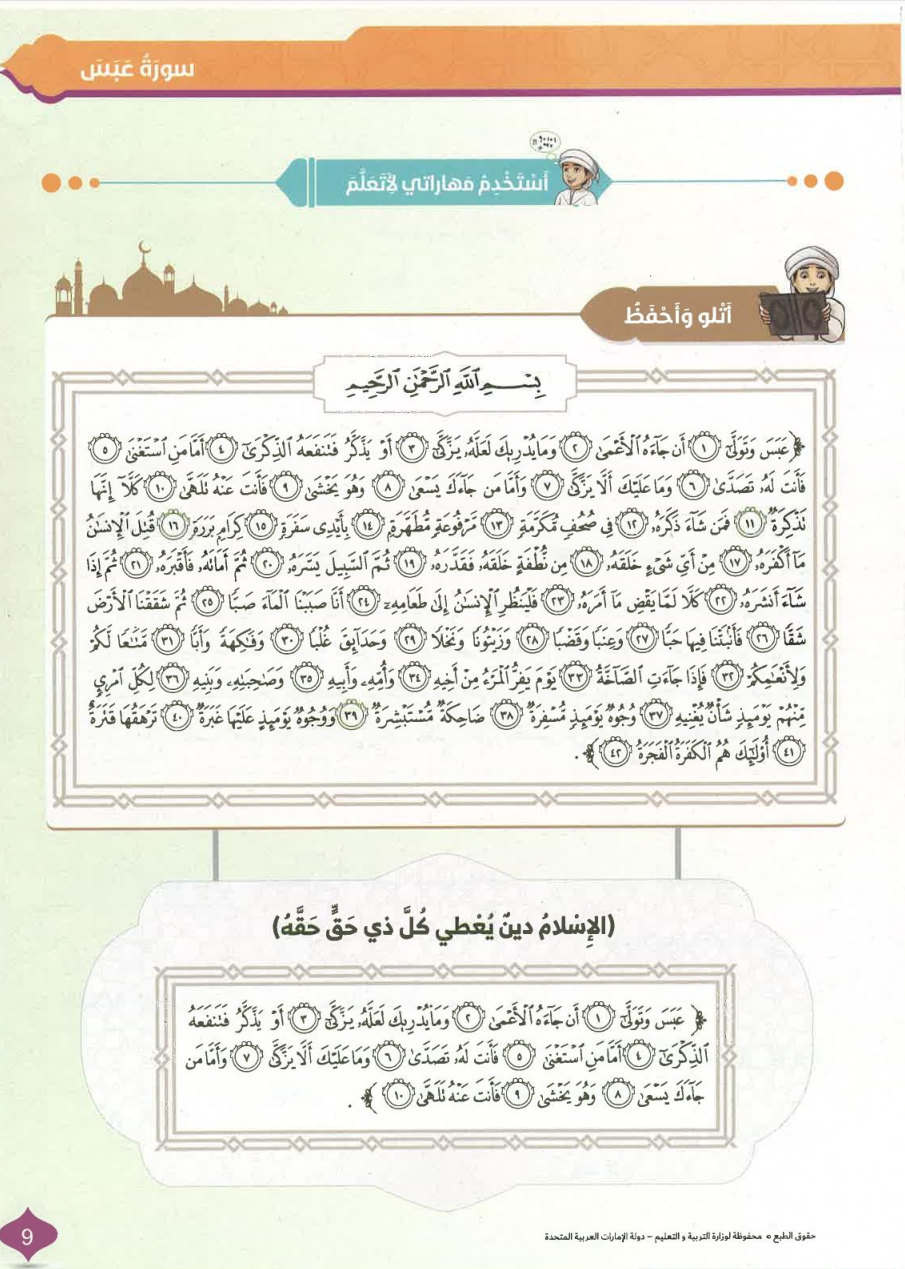 سورَةُ عَبَسَ
أَسْتَخْدِمُ مَهاراتي لِأَتَعَلَّمَ
أَتْلو وَأَحْفَظُ
بِسْمِ ٱللَّهِ ٱلرَّحْمَٰنِ ٱلرَّحِيمِ
﴿عَبَسَ وَتَوَلَّىٰٓ ١ أَن جَآءَهُ ٱلْأَعْمَىٰ ٢ وَمَا يُدْرِيكَ لَعَلَّهُۥ يَزَّكَّىٰٓ ٣ أَوْ يَذَّكَّرُ فَتَنفَعَهُ ٱلذِّكْرَىٰٓ ٤ أَمَّا مَنِ ٱسْتَغْنَىٰ ٥
فَأَنتَ لَهُۥ تَصَدَّىٰ ٦ وَمَا عَلَيْكَ أَلَّا يَزَّكَّىٰ ٧ وَأَمَّا مَن جَآءَكَ يَسْعَىٰ ٨ وَهُوَ يَخْشَىٰ ٩ فَأَنتَ عَنْهُ تَلَهَّىٰ ١٠ كَلَّآ إِنَّهَا
تَذْكِرَةٌ ١١ فَمَن شَآءَ ذَكَرَهُۥ ١٢ فِى صُحُفٍ مُّكَرَّمَةٍ ١٣ مَّرْفُوعَةٍ مُّطَهَّرَةٍۭ ١٤ بِأَيْدِى سَفَرَةٍ ١٥ كِرَامٍۭ بَرَرَةٍ ١٦ قُتِلَ ٱلْإِنسَٰنُ
مَآ أَكْفَرَهُۥ ١٧ مِنْ أَىِّ شَىْءٍ خَلَقَهُۥ ١٨ مِن نُّطْفَةٍ خَلَقَهُۥ فَقَدَّرَهُۥ ١٩ ثُمَّ ٱلسَّبِيلَ يَسَّرَهُۥ ٢٠ ثُمَّ أَمَاتَهُۥ فَأَقْبَرَهُۥ ٢١ ثُمَّ إِذَا
شَآءَ أَنشَرَهُۥ ٢٢ كَلَّا لَمَّا يَقْضِ مَآ أَمَرَهُۥ ٢٣ فَلْيَنظُرِ ٱلْإِنسَٰنُ إِلَىٰ طَعَامِهِۦٓ ٢٤ أَنَّا صَبَبْنَا ٱلْمَآءَ صَبًّا ٢٥ ثُمَّ شَقَقْنَا ٱلْأَرْضَ
شَقًّا ٢٦ فَأَنۢبَتْنَا فِيهَا حَبًّا ٢٧ وَعِنَبًا وَقَضْبًا ٢٨ وَزَيْتُونًا وَنَخْلًا ٢٩ وَحَدَآئِقَ غُلْبًا ٣٠ وَفَٰكِهَةً وَأَبًّا ٣١ مَّتَٰعًا لَّكُمْ
وَلِأَنْعَٰمِكُمْ ٣٢ فَإِذَا جَآءَتِ ٱلصَّآخَّةُ ٣٣ يَوْمَ يَفِرُّ ٱلْمَرْءُ مِنْ أَخِيهِ ٣٤ وَأُمِّهِۦ وَأَبِيهِ ٣٥ وَصَٰحِبَتِهِۦ وَبَنِيهِ ٣٦ لِكُلِّ ٱمْرِئٍ
مِّنْهُمْ يَوْمَئِذٍ شَأْنٌ يُغْنِيهِ ٣٧ وُجُوهٌ يَوْمَئِذٍ مُّسْفِرَةٌ ٣٨ ضَاحِكَةٌ مُّسْتَبْشِرَةٌ ٣٩ وَوُجُوهٌ يَوْمَئِذٍ عَلَيْهَا غَبَرَةٌ ٤٠ تَرْهَقُهَا قَتَرَةٌ
٤١ أُو۟لَٰٓئِكَ هُمُ ٱلْكَفَرَةُ ٱلْفَجَرَةُ ٤٢﴾.
(الإِسْلامُ دينٌ يُعْطي كُلَّ ذي حَقٍّ حَقَّهُ)
﴿عَبَسَ وَتَوَلَّىٰٓ ١ أَن جَآءَهُ ٱلْأَعْمَىٰ ٢ وَمَا يُدْرِيكَ لَعَلَّهُۥ يَزَّكَّىٰٓ ٣ أَوْ يَذَّكَّرُ فَتَنفَعَهُ
ٱلذِّكْرَىٰٓ ٤ أَمَّا مَنِ ٱسْتَغْنَىٰ ٥ فَأَنتَ لَهُۥ تَصَدَّىٰ ٦ وَمَا عَلَيْكَ أَلَّا يَزَّكَّىٰ ٧ وَأَمَّا مَن
جَآءَكَ يَسْعَىٰ ٨ وَهُوَ يَخْشَىٰ ٩ فَأَنتَ عَنْهُ تَلَهَّىٰ ١٠﴾.
حقوق الطبع © محفوظة لوزارة التربية و التعليم – دولة الإمارات العربية المتحدة
9